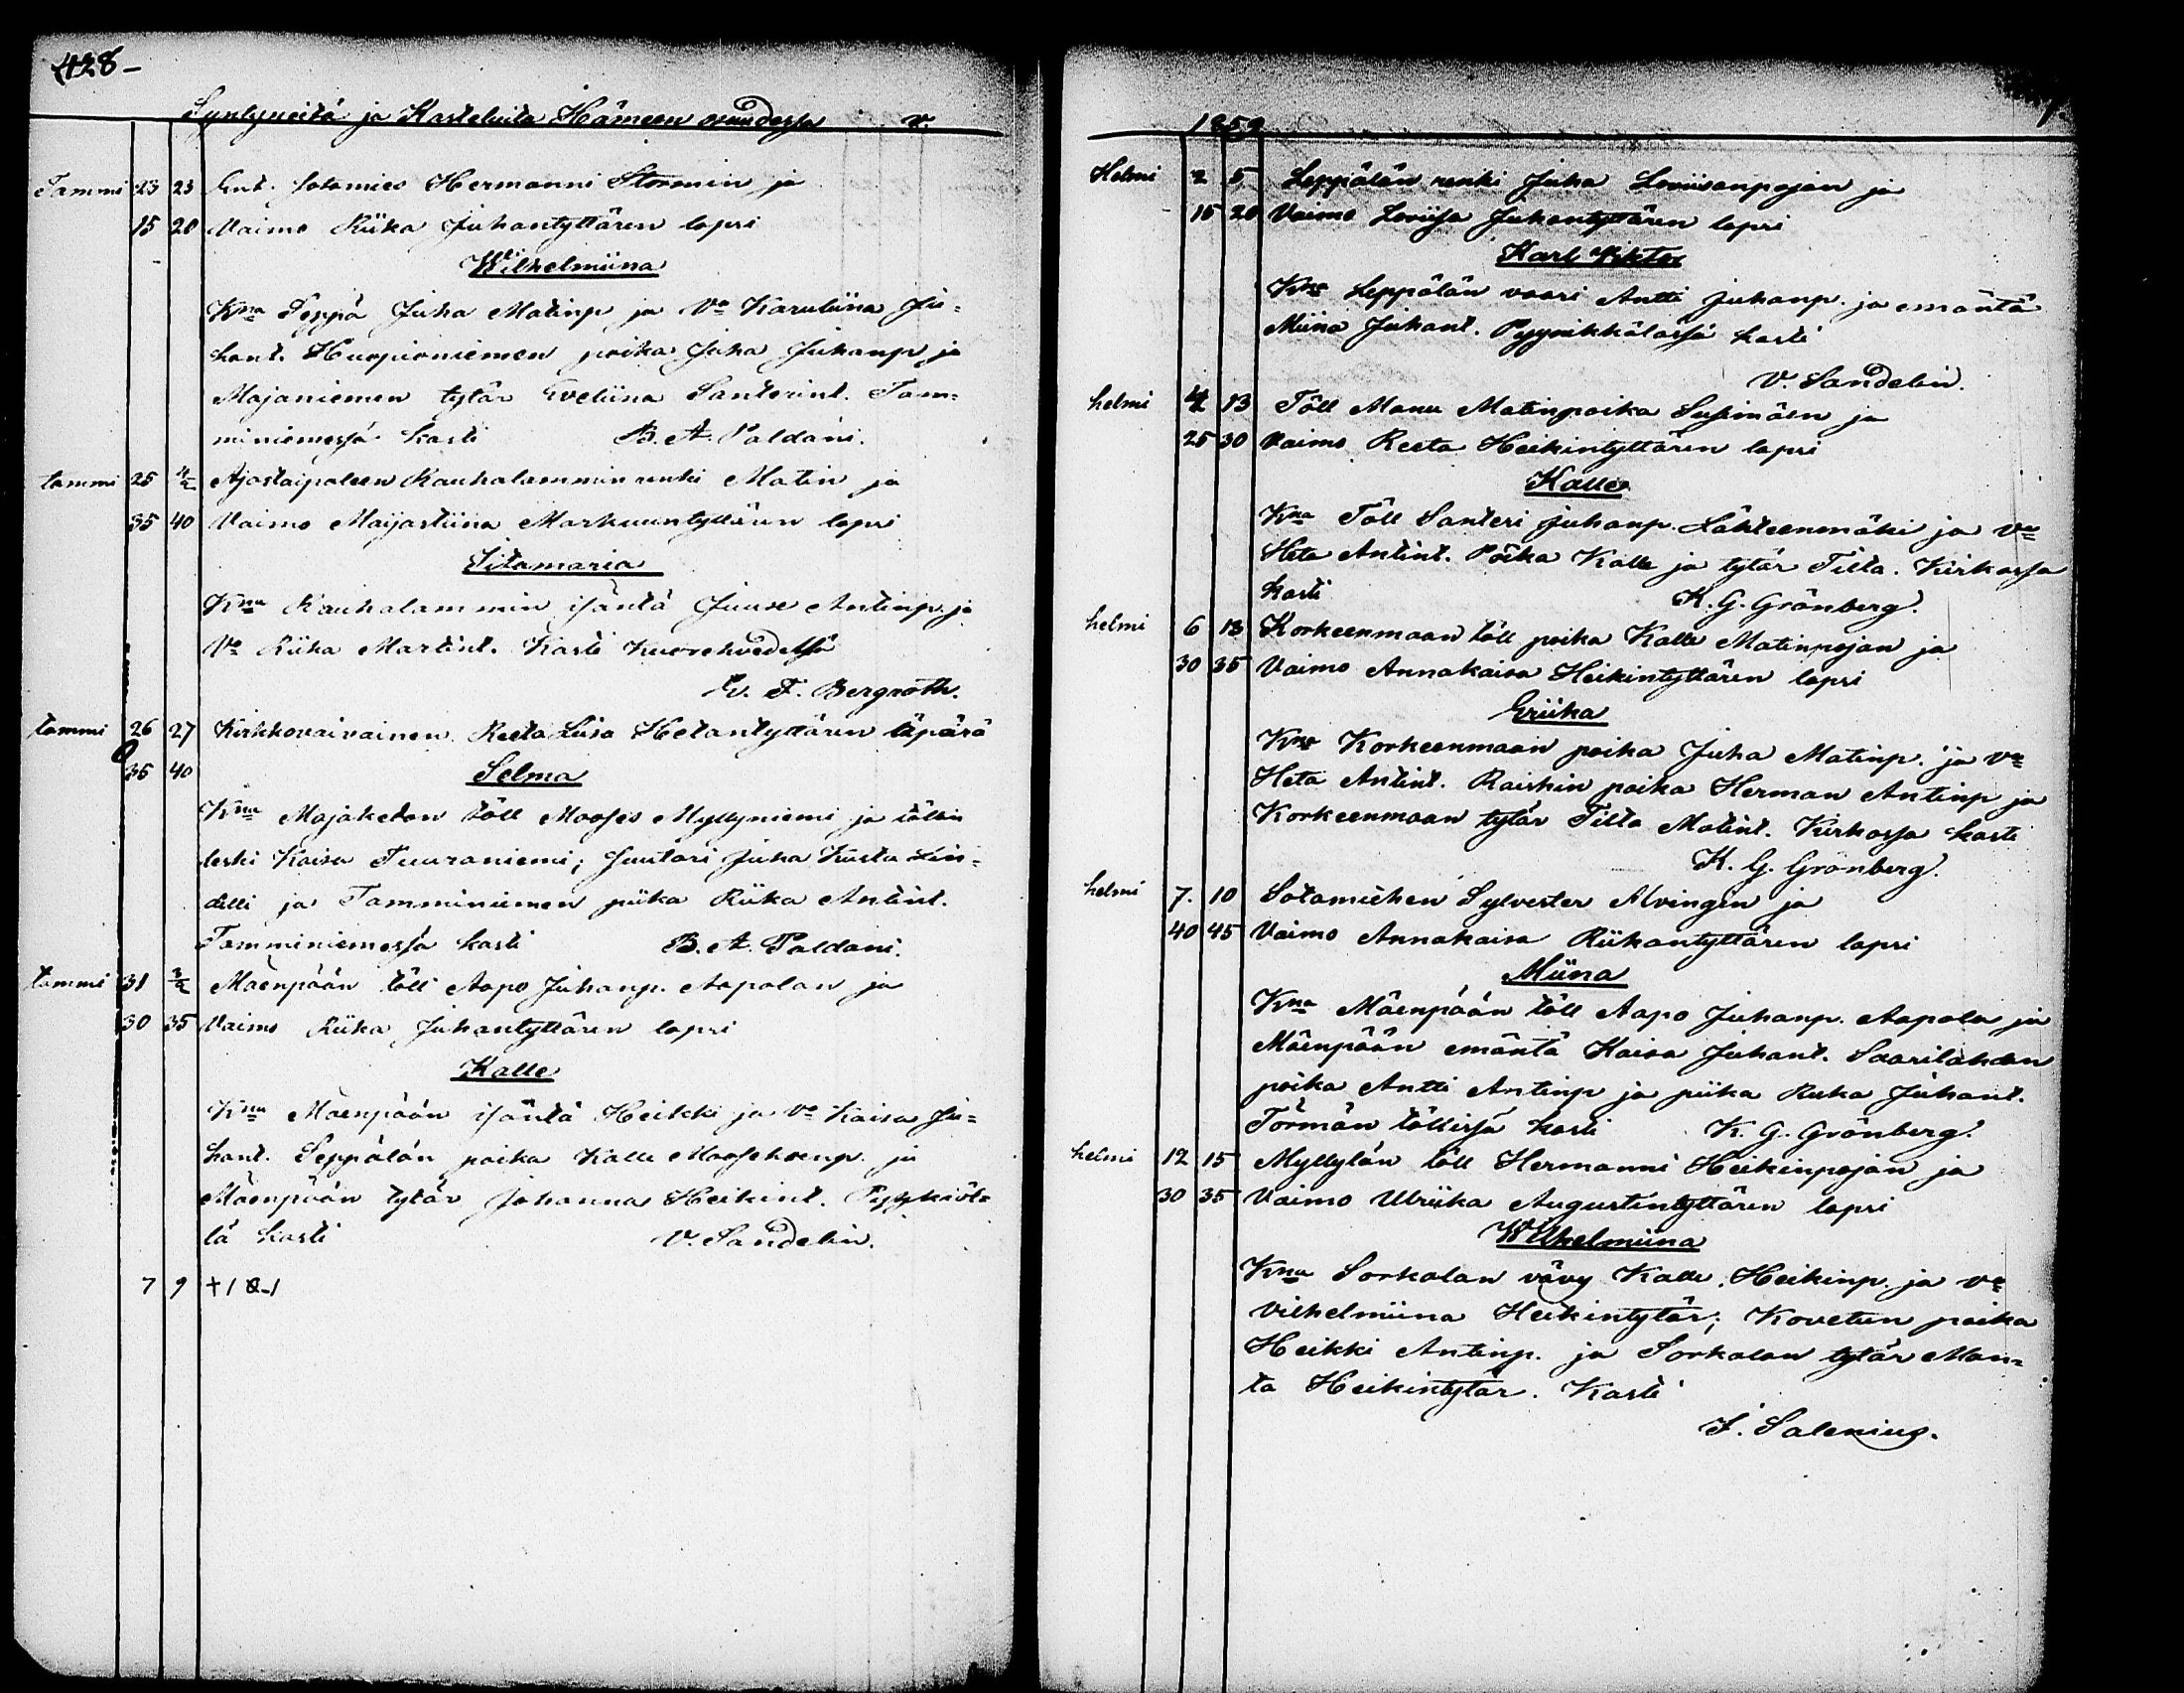 428-
Syntyneitä ja Kasteluita Hämeen osuudessa v.
Tammi 23 23 Ent. sotamies Hermanni Stormin ja
15 20 Vaimo Riika Juhantyttären lapsi
Wilhelmiina
Kna Seppä Juha Matinp ja Va Karuliina Ju=
hant. Huopioniemen poika Juha Juhanp ja
Majaniemen tytär Eveliina Santerint. Tam=
miniemessä kasti B. A. Paldani.
tammi 25 4/2 Ajostaipaleen Kauhalammin renki Matin ja
35 40 Vaimo Maijastiina Markuuntyttären lapsi
Iitamaria
Kna Kauhalammin isäntä Juuse Antinp. ja
Va Riika Martint. Kasti Kuorehvedellä
E. F. Bergroth.
tammi 26 27 Kirkkovaivainen Reeta Liisa Hetantyttären läpärä
35 40 Selma
Kna Majakedon töll Mooses Myllyniemi ja töllin
leski Kaisa Tuuraniemi; Suutari Juha Kusta Lin=
delli ja Tamminiemen piika Riika Antint.
Tamminiemessä kasti B. A. Paldani.
tammi 31 3/2 Mäenpään töll Aapo Juhanp. Aapolan ja
30 35 Vaimo Riika Juhantyttären lapsi
Kalle
Kna Mäenpään isäntä Heikki ja Va Kaisa Ju=
hant. Seppälän poika Kalle Mooseksenp. ja
Mäenpään tytär Johanna Heikint.
lä kasti V. Sandelin.
7 9 +1
1859
1.
Helmi 2 5 Leppälän renki Juha Loviisanpojan ja
15 20 Vaimo Loviisa Juhantyttären lapsi
Karl Viktor
Kna Leppälän vaari Antti Juhanp. ja emäntä
Miina Juhant. Pyynikkälässä kasti
V. Sandelin.
helmi 4 13 Töll Manu Matinpoika Susimäen ja
25 30 Vaimo Reeta Heikintyttären lapsi
Kalle
Kna Töll Santeri Juhanp. Lähteenmäki ja Va
Heta Antint. Poika Kalle ja tytär Tilta. Kirkossa
kasti K. G. Grönberg.
helmi 6 13 Korkeenmaan töll poika Kalle Matinpojan ja
30 35 Vaimo Annakaisa Heikintyttären lapsi
Eriika
Kna Korkeenmaan poika Juha Matinp. ja Va
Heta Antint. Raiskin poika Herman Antinp ja
Korkeenmaan tytär Tilta Matint. Kirkossa kasti
K. G. Grönberg.
helmi 7. 10 Sotamiehen Sylvester Alvingin ja
40 45 Vaimo Annakaisa Riikantyttären lapsi
Miina
Kna Mäenpään töll Aapo Juhanp. Aapola ja
Mäenpään emäntä Kaisa Juhant. Saarilahden
poika Antti Antinp ja piika Ruka Juhant.
Törmän töllissä kasti K. G. Grönberg.
helmi 12 15 Myllylän töll Hermanni Heikinpojan ja
30 35 Vaimo Ulriika Augustintyttären lapsi
Wilhelmiina
Kna Sorkalan vävy Kalle Heikinp. ja va
Vilhelmiina Heikintytär; Kovetun poika
Heikki Antinp. ja Sorkalan tytär Man=
ta Heikintytär. Kasti
F. Salenius.